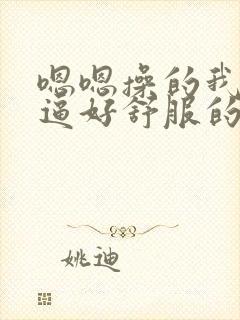 嗯嗯操的我
逼好舒服的
姚迪